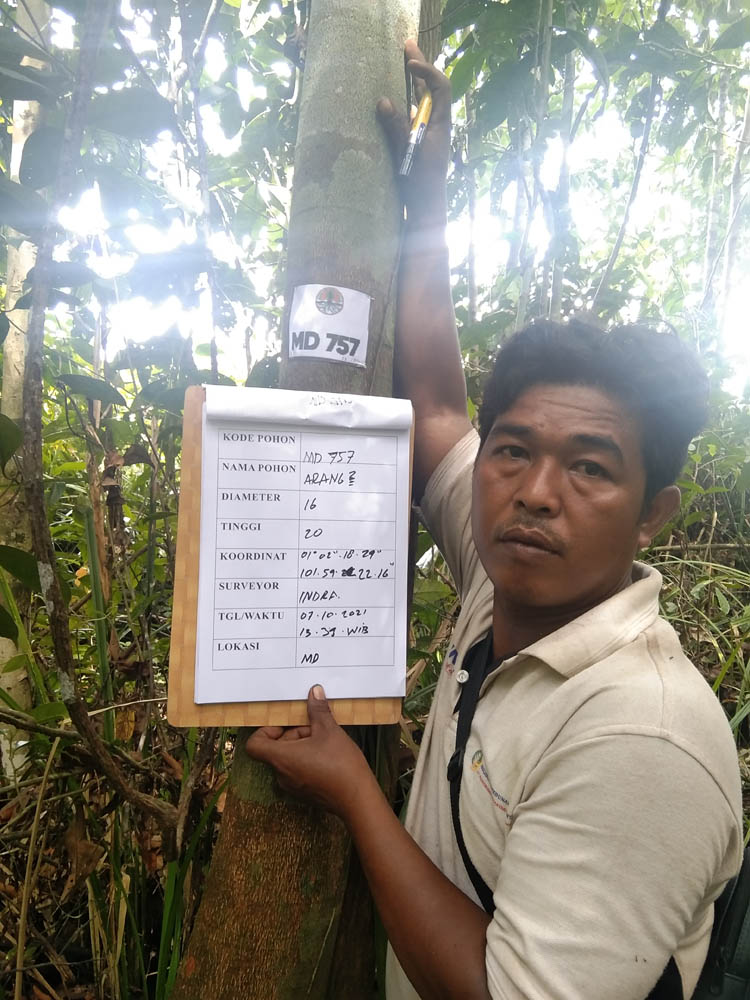 MD 757
KODE POHON MD 757
NAMA POHON ARANG2
DIAMETER 16
TINGGI 20
KOORDINAT 01° 02" . 18 . 29"
101 . 59 . 22 . 16"
SURVEYOR INDRA.
TGL/WAKTU 07 . 10 . 2021
13 . 39 . WIB
LOKASI MD